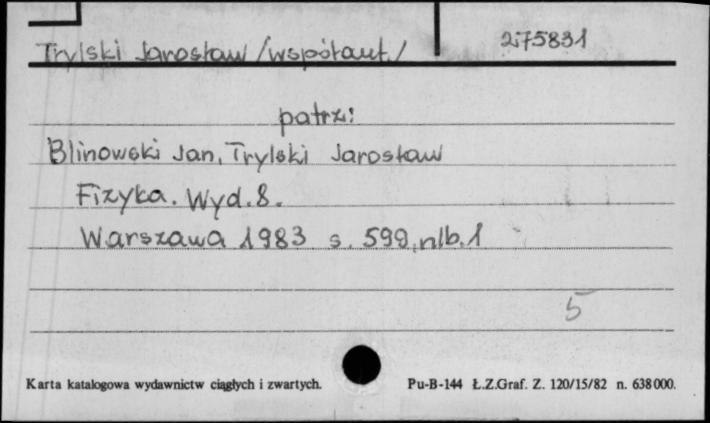 Trylski Jarosław /współaut./ 275831
patrz:
Blinowski Jan, Trylski Jarosław
Fizyka. Wyd. 8.
Warszawa 1983 s. 599, nlb. 1
5
Karta katalogowa wydawnictw ciągłych i zwartych. Pu-B-144 Ł.Z.Graf. Z. 120/15/82 n. 638000.